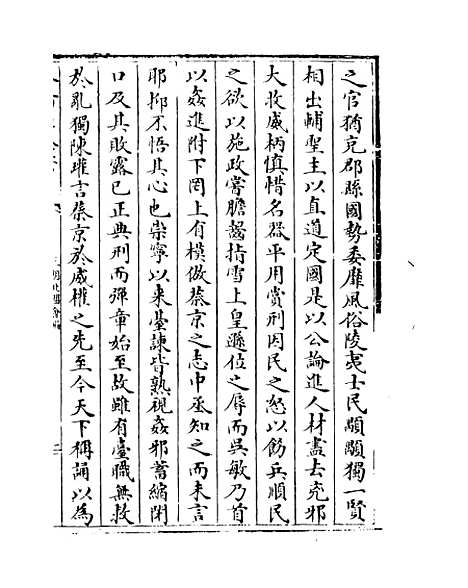 之官猶充郡縣國勢委靡風俗陵夷士民顒顒獨一賢
相出輔聖主以直道定國是以公論進人材盡去兇邪
大收威柄慎惜名器平用賞刑因民之怒以飭兵順民
之欲以施政嘗膽齧指雪上皇遜位之辱而吳敏乃首
以姦進附下罔上有模倣蔡京之志中丞知之而未言
耶抑不悟其心也崇寧以來臺諫皆熟視姦邪蓄縮閉
口及其敗露已正典刑而彈章始至故雖有臺職無救
於亂獨陳瓘言蔡京於威權之先至今天下稱誦以為